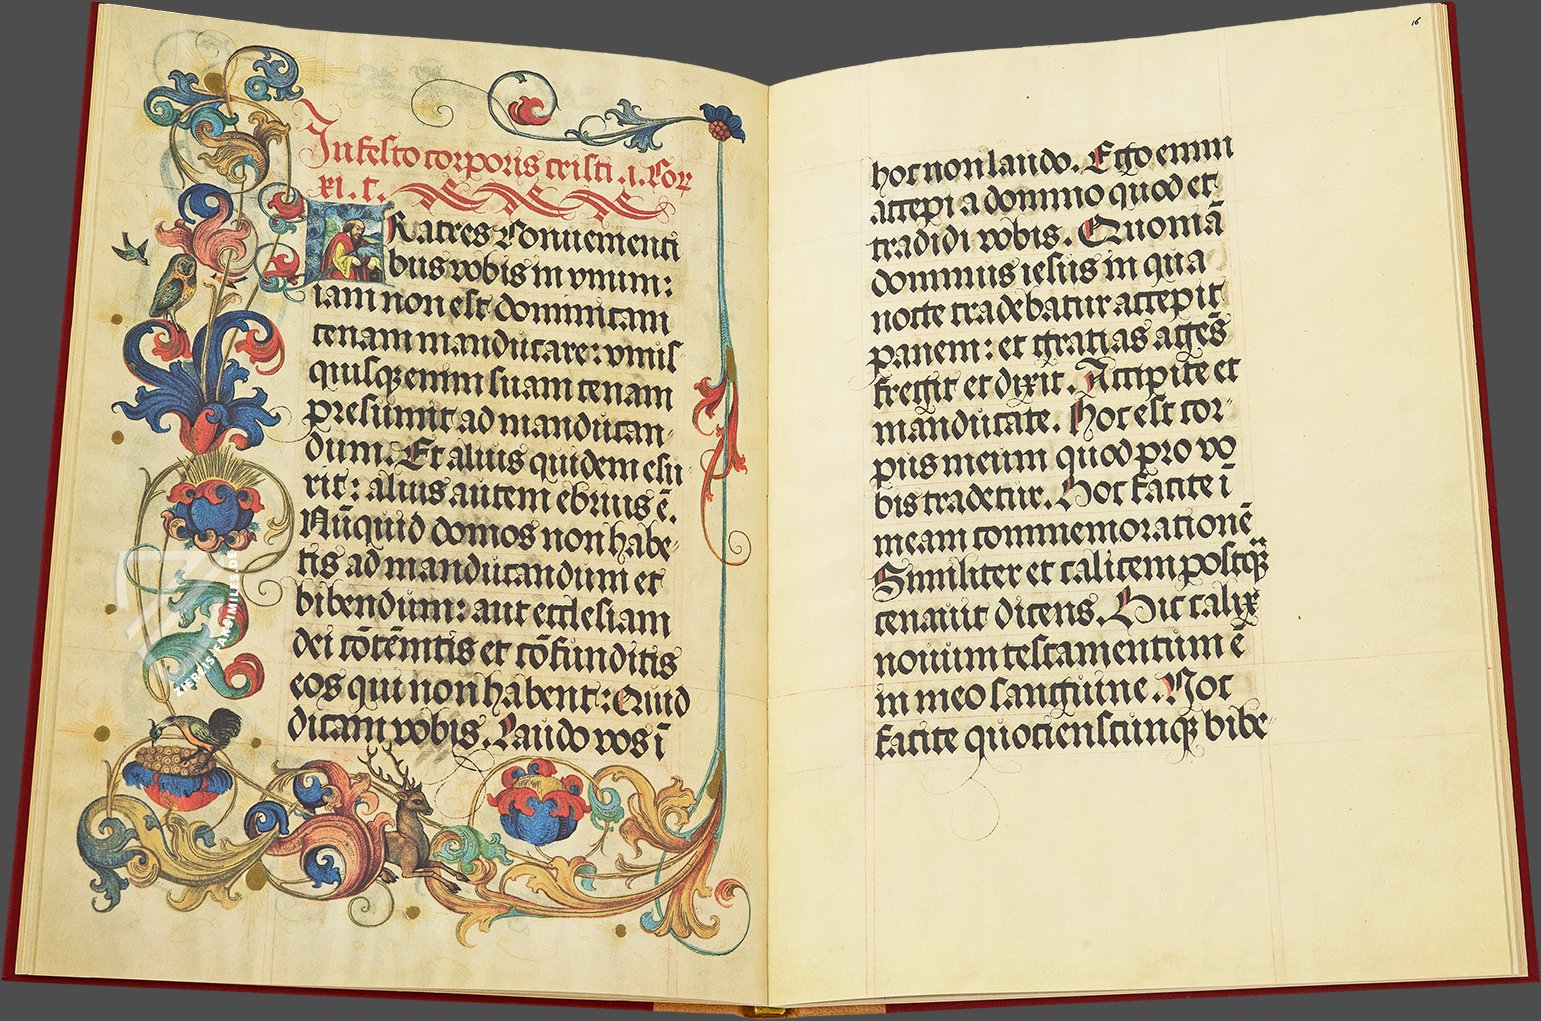 In festo corporis cristi .i. Cor
xi. c.
FRatres Conuenienti
bus vobis in vnum:
iam non est dominicam
cenam manducare: vnus
quisq enim suam cenam
presumit ad manducan-
dum. Et alius quidem esu
rit: alius autem ebrius ē.
Nūquid domos non habe-
tis ad manducandum et
bibendum: aut ecclesiam
dei cōtēmitis et cōfunditis
eos qui non habent: Quid
dicam vobis. Laudo vos ī
16
hoc non laudo. Ego enim
accepi a domino quod et
tradidi vobis. Quoniā
dominus iesus in qua
nocte tradebatur accepit
panem: et gratias agēs
fregit et dixit. Accipite et
manducate. Hoc est cor-
pus meum quod pro vo
bis tradetur. Hoc facite ī
meam commemorationē
Similiter et calicem postq̄
cenauit dicens. Hic calix
nouum testamentum ē
in meo sanguine. Hoc
facite quotienscunq bibe-